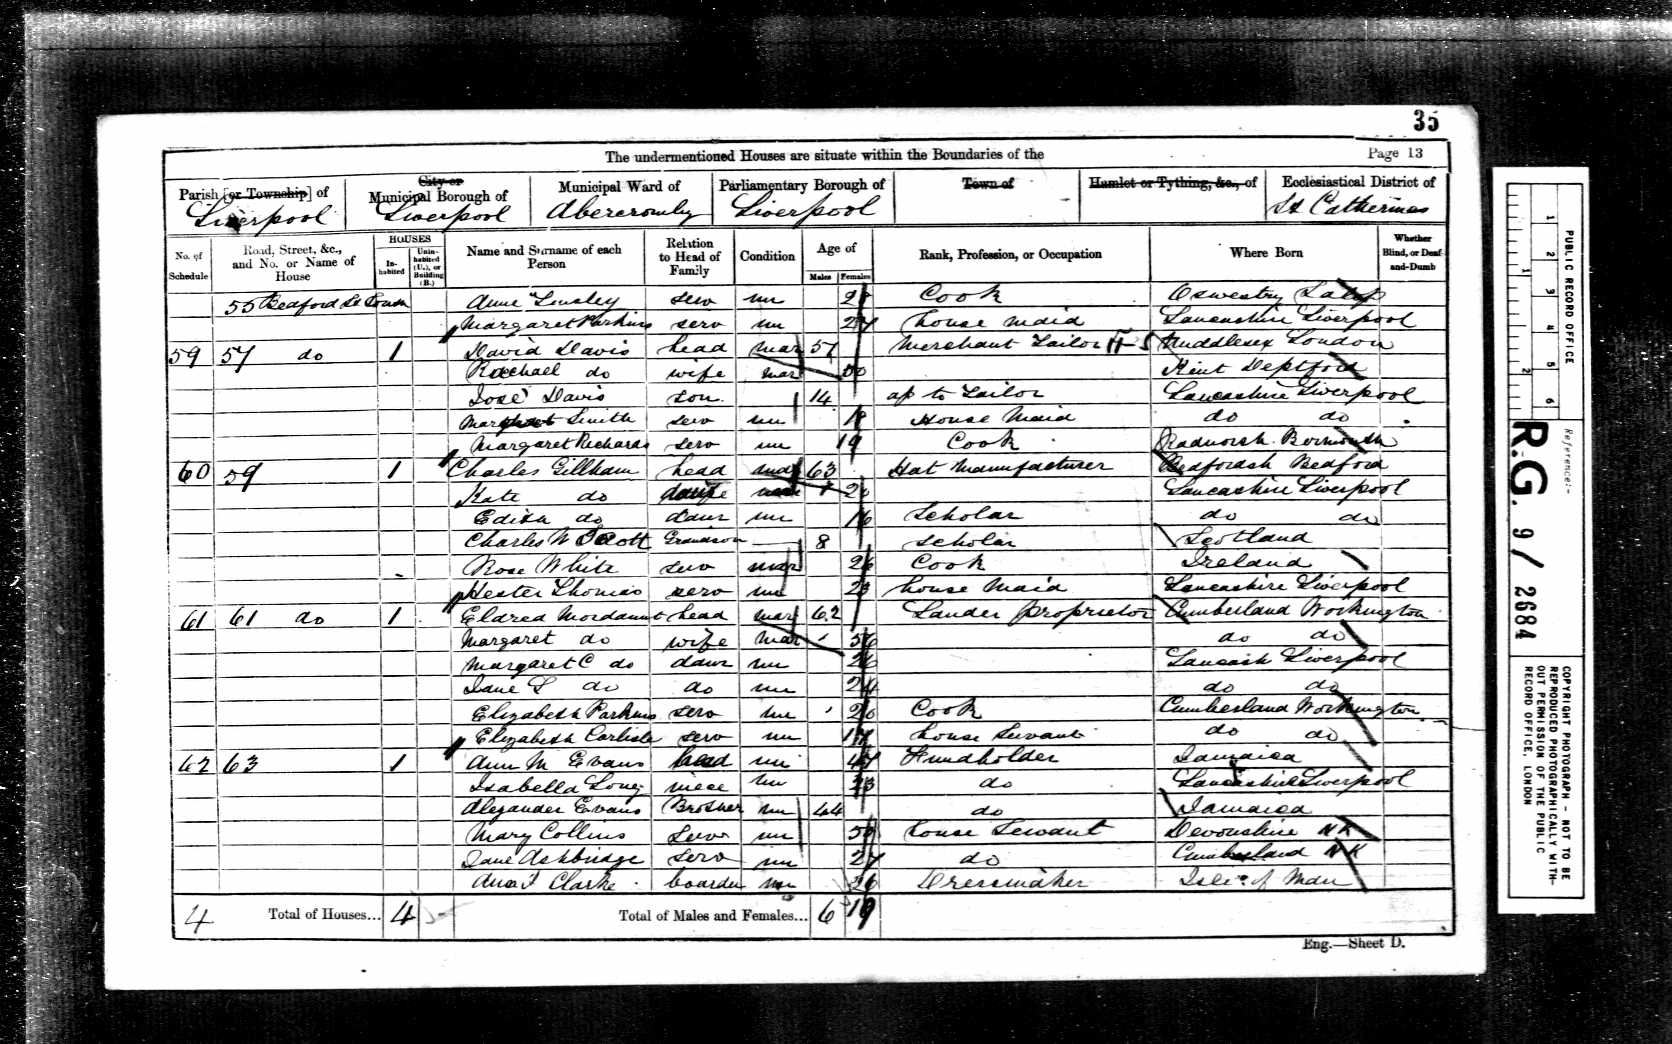 35
The undermentioned Houses are situate within the Boundaries of the Page 13
Parish [or Township] of City or Municipal Borough of Municipal Ward of Parliamentary Borough of Town of Hamlet or Tything, &c., of Ecclesiastical District of
Liverpool Liverpool Abercromby Liverpool St Catherines
No. of Schedule Road, Street, &c., and No. or Name of House HOUSES Inhabited Uninhabited (U.), or Building (B.) Name and Surname of each Person Relation to Head of Family Condition Age of Males Females Rank, Profession, or Occupation Where Born Whether Blind, or Deaf-and-Dumb
55 Bedford St South Anne serv un Cook Oswestry Salop
Margaret Parkins serv un 27 house maid Lancashire Liverpool
59 57 do 1 David Davis head mar 57 Merchant Tailor Middlesex London
Rachael do wife mar 50 Kent Deptford
Davis son 14 ap to Tailor Lancashire Liverpool
Smith serv un House Maid do do
Margaret Richards serv un 19 Cook Radnorsh
60 59 1 Charles Gillham head 63 Hat Manufacturer Bedfordsh Bedford
Kate do 20 Lancashire Liverpool
Edith do daur un 16 Scholar do do
Charles W Scott Grandson 8 scholar Scotland
Rose White serv mar 26 Cook Ireland
Hester Thomas serv un 23 house Maid Lancashire Liverpool
61 61 do 1 Eldred Mordaunt head mar 62 Landed proprietor Cumberland Workington
Margaret do wife mar 56 do do
Margaret C do daur un 26 Lancash Liverpool
Jane do do un 24 do do
Elizabeth Parkins serv un 20 Cook Cumberland Workington
Elizabeth Carlisle serv un house servant do do
62 63 1 Ann M Evans head un Fundholder Jamaica
Isabella Long niece un 23 do Lancashire Liverpool
Alexander Evans Brother un 44 do Jamaica
Mary Collins Serv un house Servant Devonshire NK
Jane Ashbridge serv un 27 do Cumberland NK
Clarke boarder un 26 Dressmaker Isle of Man
4 Total of Houses... 4 Total of Males and Females... 6 19
Eng.—Sheet D.
PUBLIC RECORD OFFICE
1 2 3 4 5 6
1 2
Reference:-
R.G. 9 / 2684
COPYRIGHT PHOTOGRAPH – NOT TO BE
REPRODUCED PHOTOGRAPHICALLY WITH-
OUT PERMISSION OF THE PUBLIC
RECORD OFFICE, LONDON